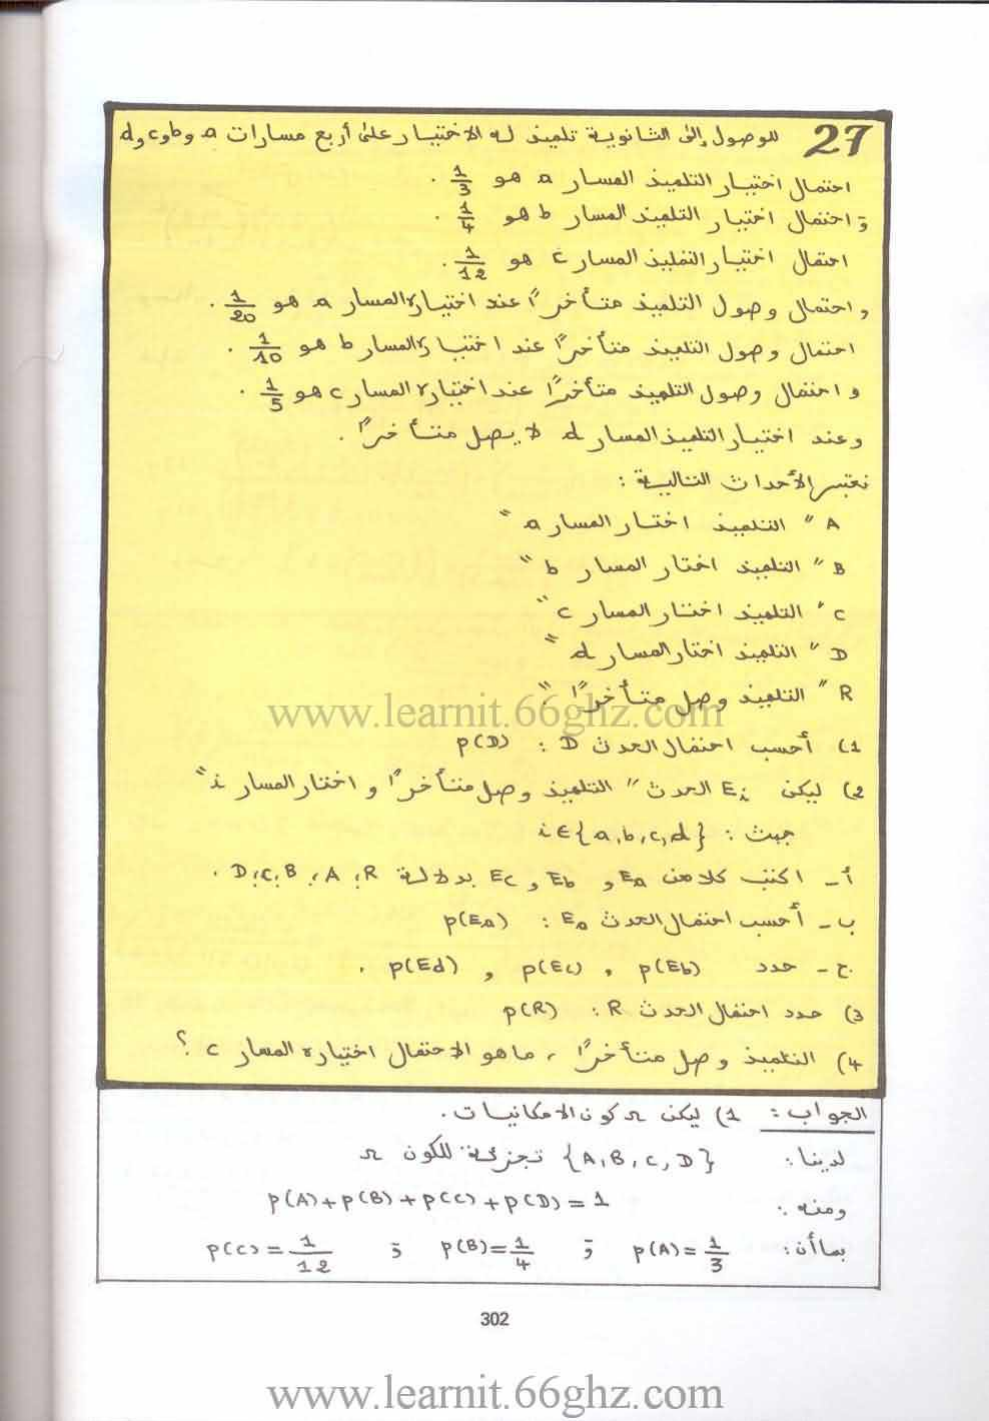 27 للوصول إلى الثانوية تلميذ له الاختيار على أربع مسارات a و b و c و d
احتمال اختيار التلميذ المسار a هو 1/3 .
و احتمال اختيار التلميذ المسار b هو 1/4 .
احتمال اختيار التلميذ المسار c هو 1/12 .
و احتمال وصول التلميذ متأخرًا عند اختياره المسار a هو 1/20 .
احتمال وصول التلميذ متأخرًا عند اختياره المسار b هو 1/10 .
و احتمال وصول التلميذ متأخرًا عند اختياره المسار c هو 1/5 .
وعند اختيار التلميذ المسار d لا يصل متأخرًا .
نعتبر الأحداث التالية :
A " التلميذ اختار المسار a "
B " التلميذ اختار المسار b "
C " التلميذ اختار المسار c "
D " التلميذ اختار المسار d "
R " التلميذ وصل متأخرًا "
www.learnit.66ghz.com
1) أحسب احتمال الحدث D : p(D)
2) ليكن Ei الحدث " التلميذ وصل متأخرًا و اختار المسار i "
حيث : i∈{a,b,c,d}
أ- اكتب كلا من Ea و Eb و Ec بدلالة R ، A ، B ، C ، D .
ب- أحسب احتمال الحدث Ea : p(Ea)
ج- حدد p(Eb) ، p(Ec) ، p(Ed) .
3) حدد احتمال الحدث R : p(R)
4) التلميذ وصل متأخرًا ، ما هو الاحتمال اختياره المسار c ؟
الجواب : 1) ليكن Ω كون الامكانيات .
لدينا : {A,B,C,D} تجزئة للكون Ω
ومنه : p(A)+p(B)+p(C)+p(D)=1
بما أن : p(A)=1/3 ; p(B)=1/4 ; p(C)=1/12
302
www.learnit.66ghz.com